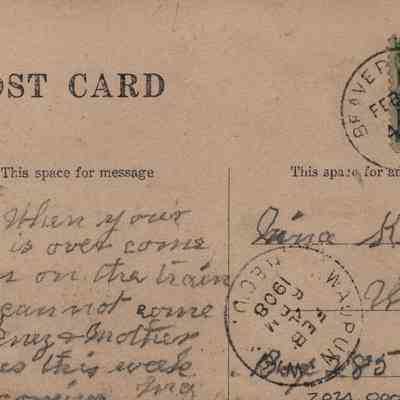 OST CARD
BEAVER
FEB
4
This space for message
This space for ad
When your
is over come
n on the train
cannot come
& Mother
es this week
Nina K
REC'D.
WAUPUN
1908
FEB
Box 285